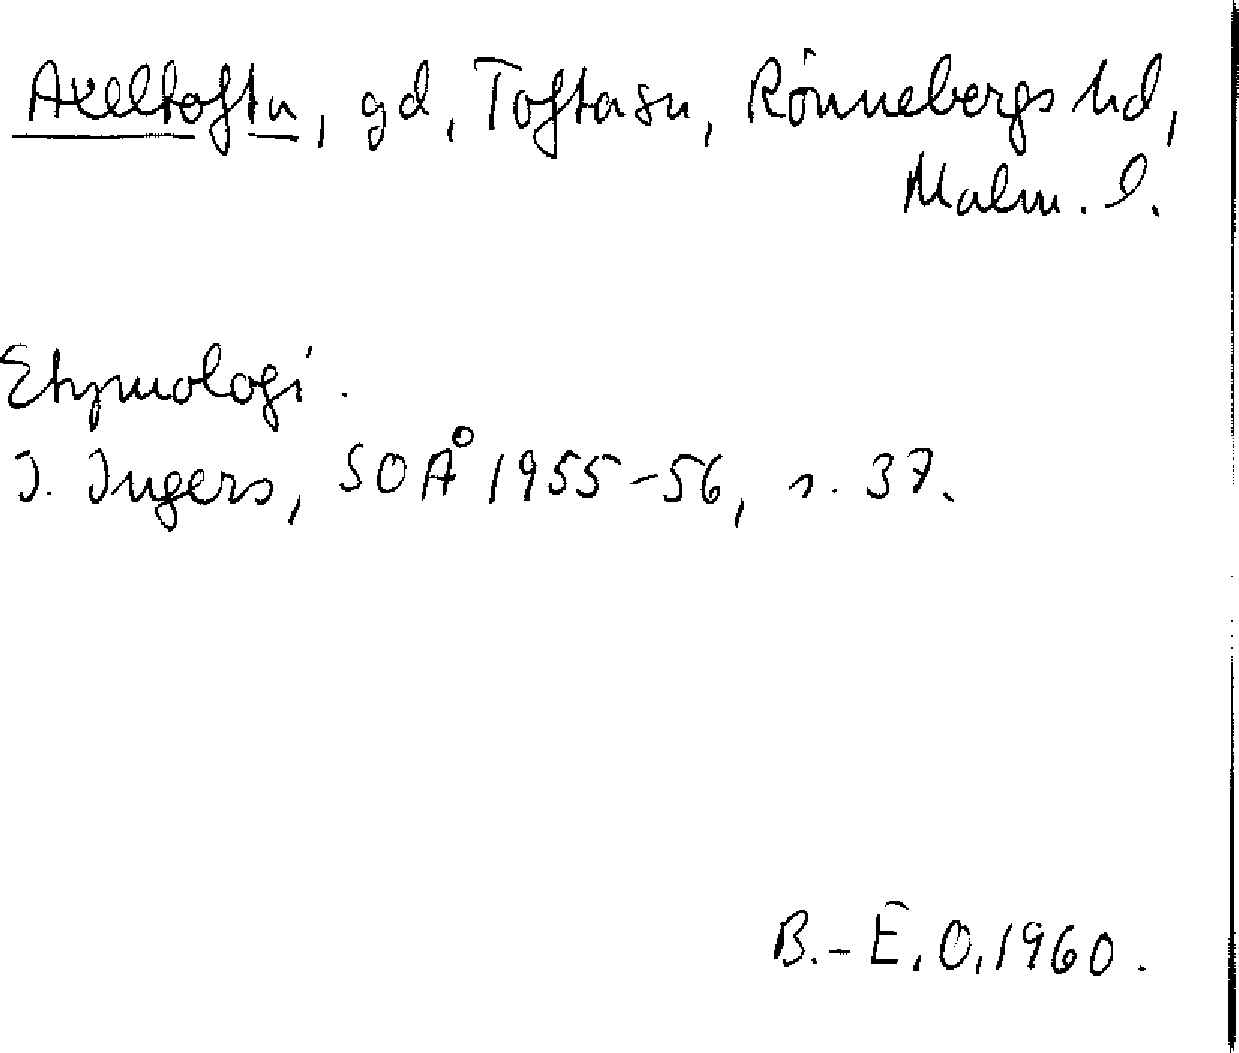 Axeltofta, gd, Tofta sn, Rönnebergs hd,
Malm. l.
Etymologi.
I. Ingers, SOÅ 1955-56, s. 37.
B.-E. O. 1960.